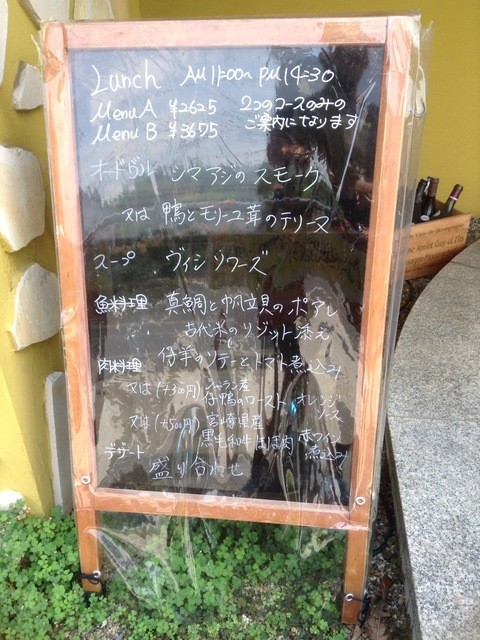 Lunch AM 11:00〜 PM 14:30
Menu A ¥2625 2つのコースのみの
Menu B ¥3675 ご案内になります
オードヴル シマアジのスモーク
又は 鴨とモリーユ茸のテリーヌ
スープ ヴィシソワーズ
魚料理 真鯛と帆立貝のポアレ
古代米のリゾット添え
肉料理 仔羊のソテーとトマト煮込み
又は(+300円) シャラン産
仔鴨のロースト オレンジ
ソース
又は(+500円) 宮崎県産
黒毛和牛ほほ肉 赤ワイン
煮込み
デザート 盛り合わせ